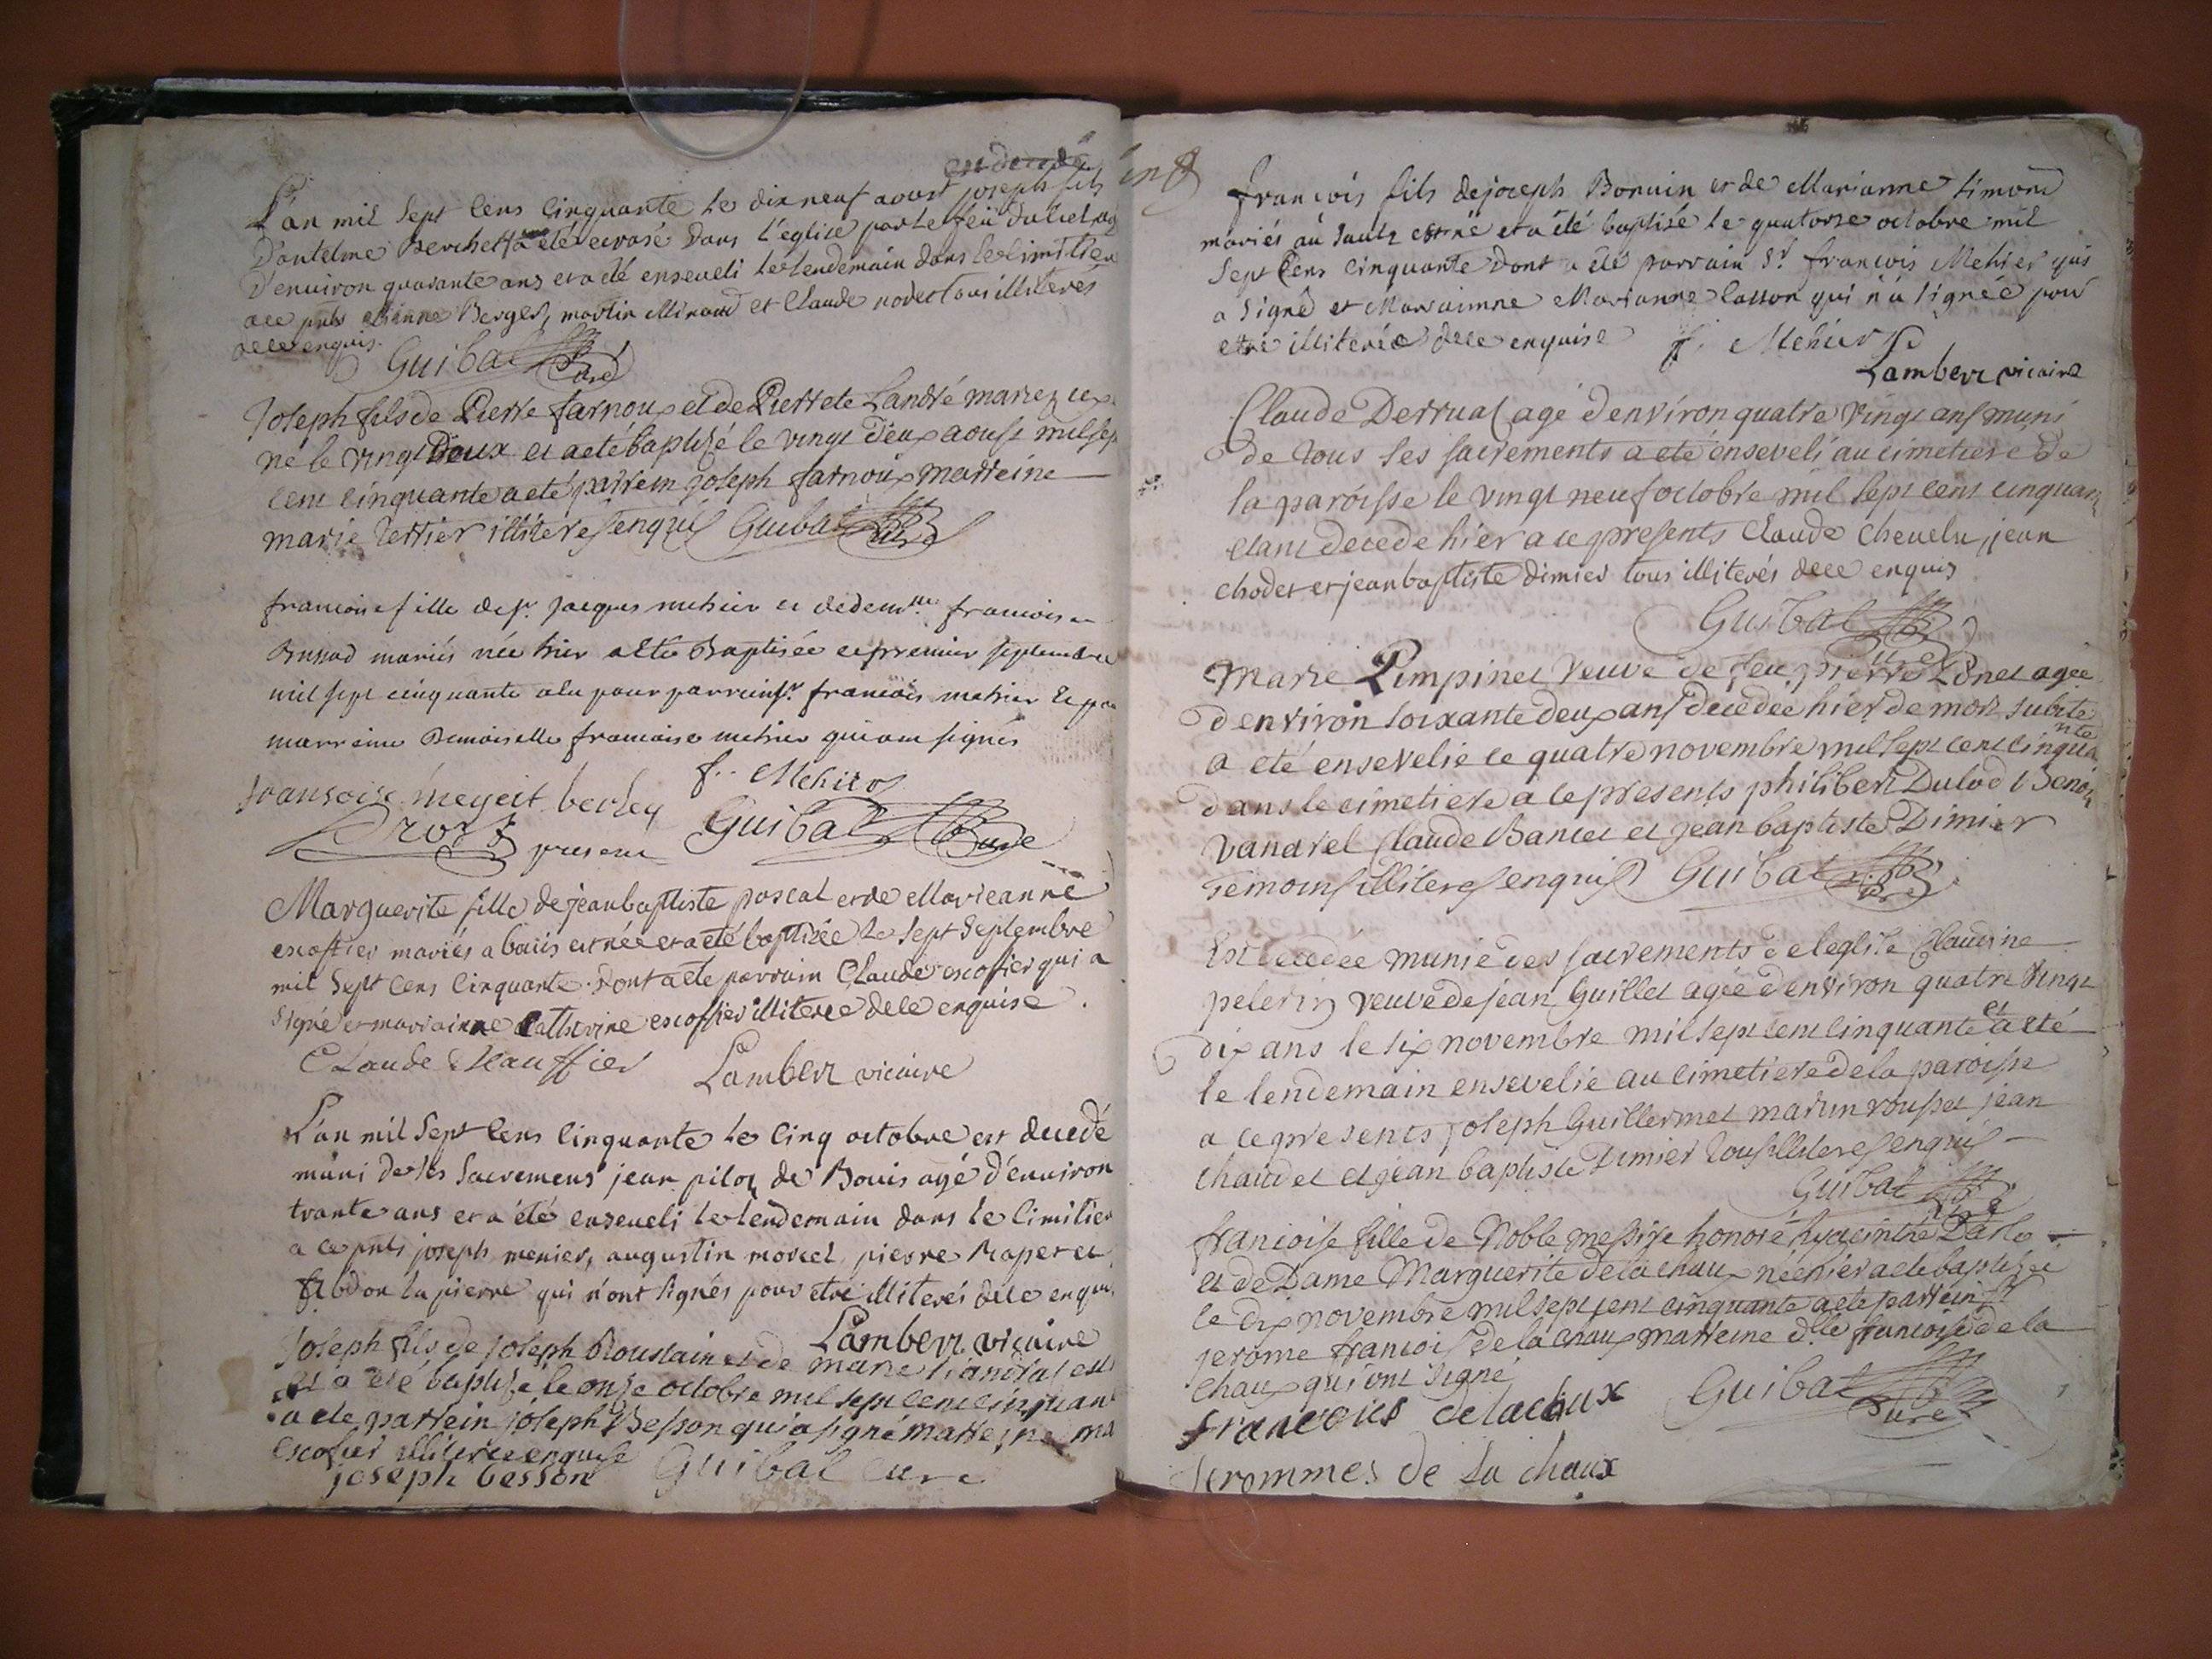 L'an mil sept cens cinquante le dix neuf aoust joseph fils
D'antelme Berchet a été ecrasé dans l'église par le feu du ciel agé
D'environ quarante ans et a été enseveli le lendemain dans le cimitiere
a ce pnts Berger, martin et Claude nodet tous illiterés
de ce enquis.
Guibal Curé
Joseph fils de Pierre farnoux et de Pierrete Landré mariez
né le vingt Deux et a eté baptizé le vingt deux aoust mil sept
cent cinquante a eté parrein joseph farnoux marreine
marie Terrier illiteres enquis Guibal curé
francoise fille de sr jacques mehier et de demlle francoise
mariés née hier a eté Baptisée ce premier septembre
mil sept cinquante a lu pour parrein sr francois mehier et pr
marreine Demoiselle francoise mehier qui ont signés
f. Mehier
fransoise berley
Drost present Guibal Curé
Marguerite fille de jean baptiste pascal et de Marieanne
escoffier mariés a bouis est née et a eté baptisée le sept Septembre
mil sept cens cinquante. Dont a ete parrain Claude escoffier qui a
signé et marrainne Catherine escoffier illiterée de ce enquise.
Claude Lambert vicaire
L'an mil sept cens cinquante le cinq octobre est decedé
muni de ses sacremens jean pilon de Bouis agé d'environ
trante ans et a été enseveli le lendemain dans le cimitier
a ce pnts joseph menier, augustin morel pierre et
la pierre qui n'ont signés pour etre illiterés de ce enquis
Lambert vicaire
Joseph fils de joseph Roustain et de marie est né
et a eté baptizé le onze octobre mil sept cent cinquante
a ete parrein joseph Besson qui a signé marreine
escofier illiterée enquise
joseph besson Guibal curé
francois fils de joseph Bonuin et de Marianne Simond
mariés au Sault est né et a été baptisé le quatorse octobre mil
sept cens cinquante dont a été parrain Sr francois Mehier qui
a signé et Marrainne Marianne qui n'a signée pour
etre illiterée de ce enquise f. Mehier
Lambert vicaire
Claude Derrual agé d'environ quatre vingt ans muni
de tous ses sacrements a eté enseveli au cimetiere de
la paroisse le vingt neuf octobre mil sept cent cinquante
etant decede hier a ce presents Claude Chevelu, jean
chodet et jean baptiste dimier tous illiterés de ce enquis
Guibal curé
Marie Pimpinet veuve de feu pierre agée
d'environ soixante deux ans decedée hier de mort subite
a eté ensevelie ce quatre novembre mil sept cent cinquante
dans le cimetiere a ce presents philibert Dulod Benoit
Vanarel Claude Bancet et jean baptiste Dimier
Temoins illiteres enquis Guibal curé
Est decedée munie des sacrements de l'eglise Claudine
pelerin veuve de jean Guillet agée d'environ quatre vingt
dix ans le six novembre mil sept cent cinquante et a eté
le lendemain ensevelie au cimetiere de la paroisse
a ce presents joseph Guillermet martin rousset jean
chaudet et jean baptiste Dimier tous illiteres enquis
Guibal curé
francoise fille de Noble messire honoré hyacinthe
et de Dame Marguerite de la chaux née hier a ete baptizée
le dix novembre mil sept cent cinquante a ete parrein Sr
jerome francois de la chaux marreine dlle francoise de la
chaux qui ont signé
francoise delachaux Guibal Curé
Jerommes de La chaux